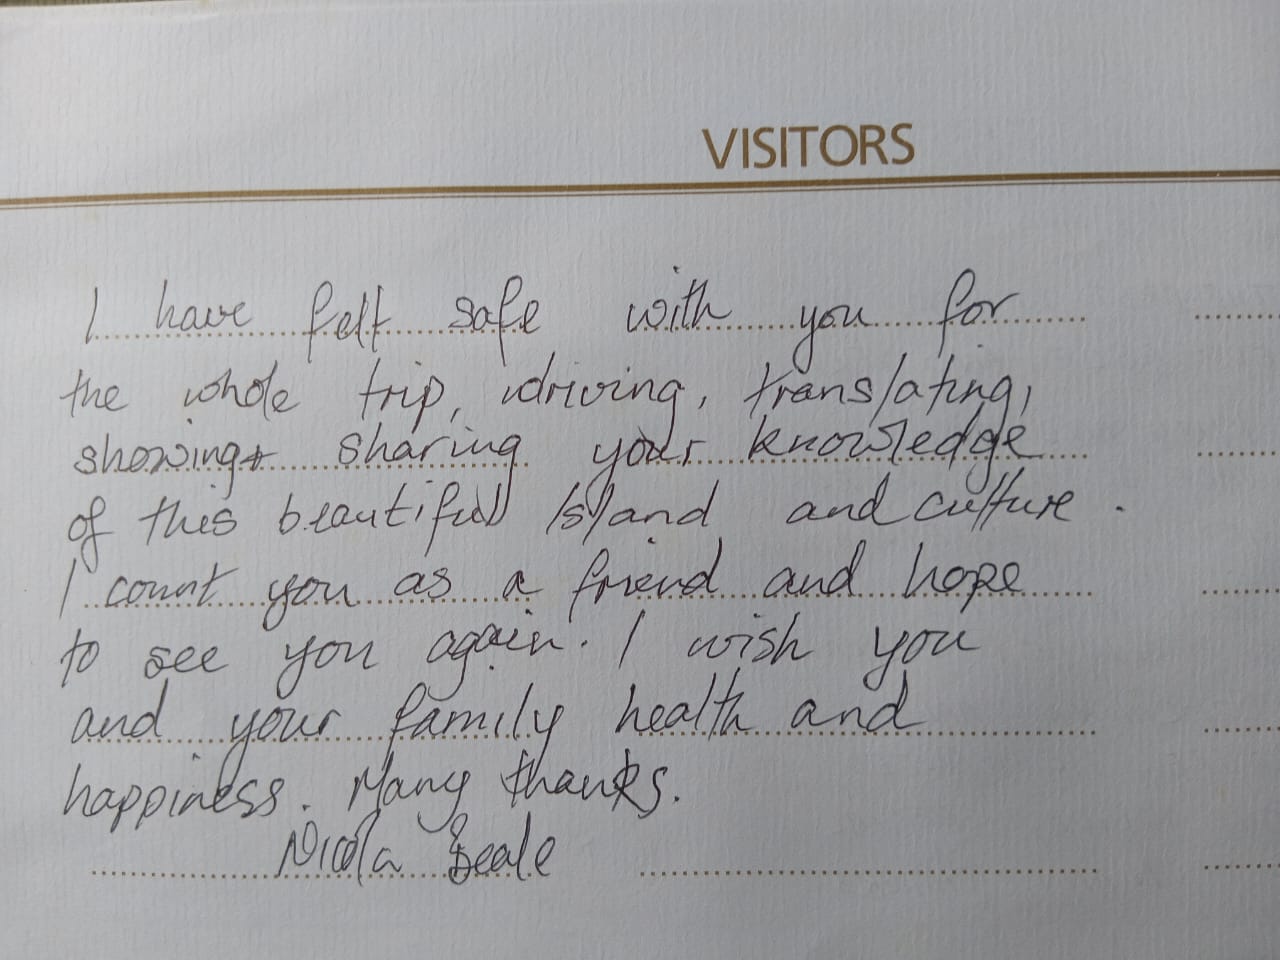 VISITORS
I have felt safe with you for
the whole trip, driving, translating,
showing + sharing your knowledge
of this beautiful Island and culture.
I count you as a friend and hope
to see you again. I wish you
and your family health and
happiness. Many thanks.
Nicola